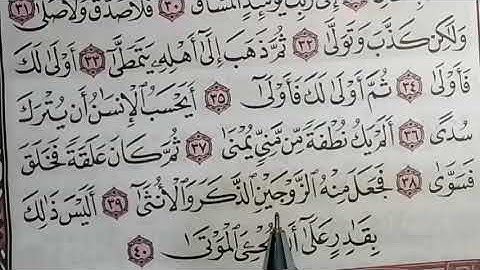 إِلَىٰ رَبِّكَ يَوْمَئِذٍ ٱلْمَسَاقُ ٣٠ فَلَا صَدَّقَ وَلَا صَلَّىٰ ٣١
وَلَٰكِن كَذَّبَ وَتَوَلَّىٰ ٣٢ ثُمَّ ذَهَبَ إِلَىٰٓ أَهْلِهِۦ يَتَمَطَّىٰٓ ٣٣ أَوْلَىٰ لَكَ
فَأَوْلَىٰ ٣٤ ثُمَّ أَوْلَىٰ لَكَ فَأَوْلَىٰٓ ٣٥ أَيَحْسَبُ ٱلْإِنسَٰنُ أَن يُتْرَكَ
سُدًى ٣٦ أَلَمْ يَكُ نُطْفَةً مِّن مَّنِىٍّ يُمْنَىٰ ٣٧ ثُمَّ كَانَ عَلَقَةً فَخَلَقَ
فَسَوَّىٰ ٣٨ فَجَعَلَ مِنْهُ ٱلزَّوْجَيْنِ ٱلذَّكَرَ وَٱلْأُنثَىٰٓ ٣٩ أَلَيْسَ ذَٰلِكَ
بِقَٰدِرٍ عَلَىٰٓ ٱلْمَوْتَىٰ ٤٠